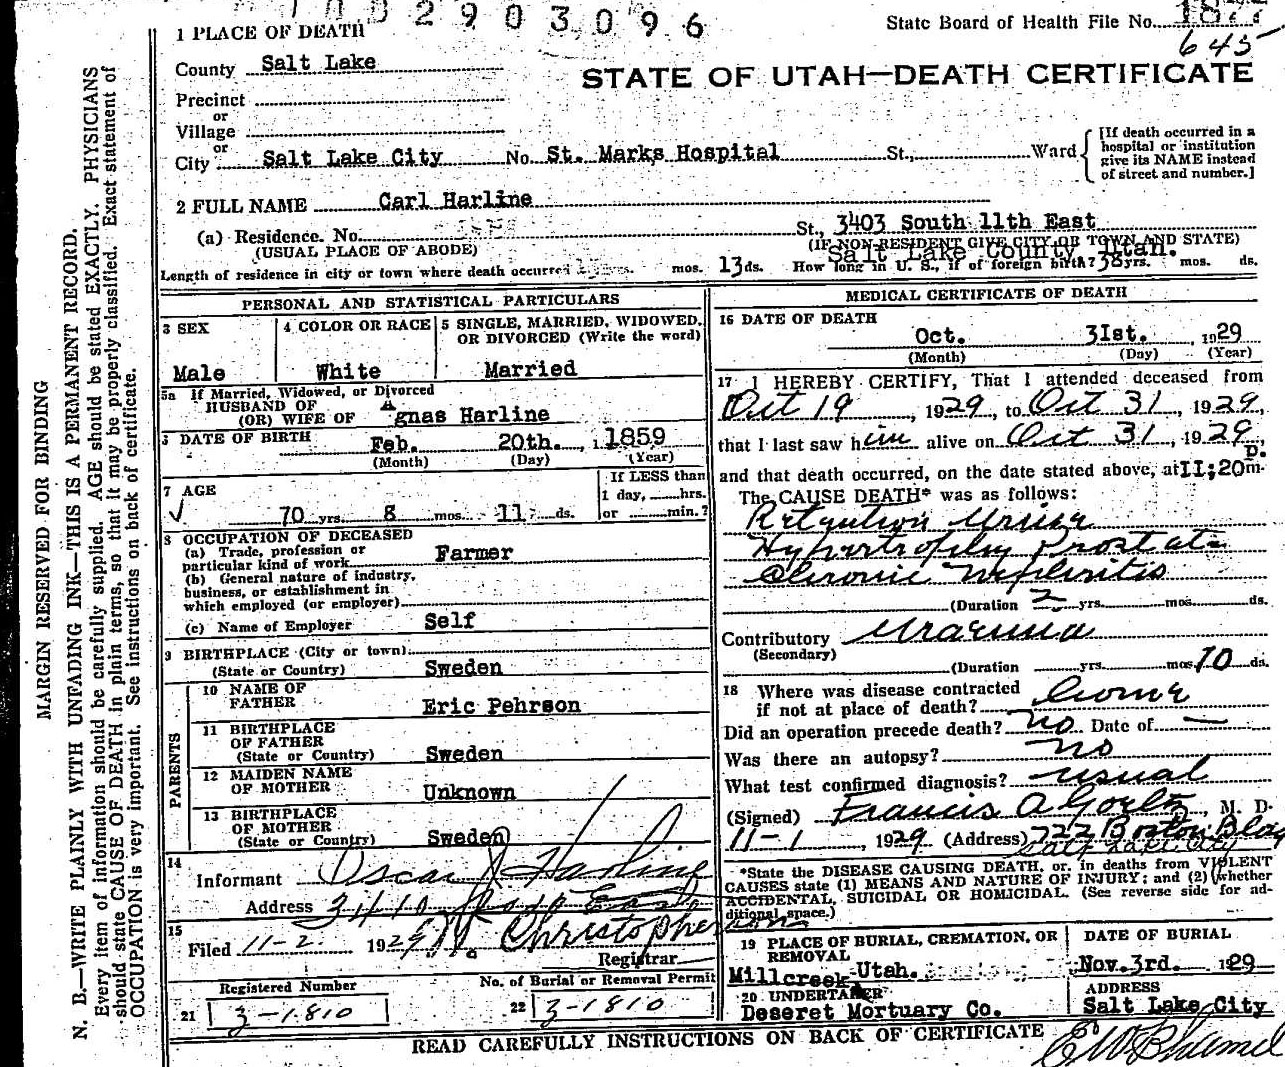 2903096
State Board of Health File No.
645
1 PLACE OF DEATH
County Salt Lake
STATE OF UTAH—DEATH CERTIFICATE
Precinct
or
Village
or
City Salt Lake City No. St. Marks Hospital St., Ward
[If death occurred in a hospital or institution give its NAME instead of street and number.]
2 FULL NAME Carl Harline
(a) Residence. No. St., 3403 South 11th East
(USUAL PLACE OF ABODE) (IF NON-RESIDENT GIVE CITY OR TOWN AND STATE)
Salt Lake County Utah.
Length of residence in city or town where death occurred yrs. mos. 13 ds. How long in U. S., if of foreign birth? 38 yrs. mos. ds.
PERSONAL AND STATISTICAL PARTICULARS
3 SEX
Male
4 COLOR OR RACE
White
5 SINGLE, MARRIED, WIDOWED, OR DIVORCED (Write the word)
Married
5a If Married, Widowed, or Divorced
HUSBAND OF
(OR) WIFE OF Agnas Harline
DATE OF BIRTH Feb. 20th. 1859
(Month) (Day) (Year)
7 AGE
70 yrs. 8 mos. 11 ds.
If LESS than
1 day, hrs.
or min.?
8 OCCUPATION OF DECEASED
(a) Trade, profession or
particular kind of work Farmer
(b) General nature of industry,
business, or establishment in
which employed (or employer)
(c) Name of Employer Self
9 BIRTHPLACE (City or town)
(State or Country) Sweden
PARENTS
10 NAME OF
FATHER Eric Pehrson
11 BIRTHPLACE
OF FATHER
(State or Country) Sweden
12 MAIDEN NAME
OF MOTHER Unknown
13 BIRTHPLACE
OF MOTHER
(State or Country) Sweden
14
Informant Oscar J Harline
Address 3410 East
15
Filed 11-2 1929 Christopherson
Registrar
Registered Number
21 3-1810
No. of Burial or Removal Permit
22 3-1810
MEDICAL CERTIFICATE OF DEATH
16 DATE OF DEATH
Oct. 31st. 1929
(Month) (Day) (Year)
17 I HEREBY CERTIFY, That I attended deceased from
Oct 19, 1929, to Oct 31, 1929,
that I last saw him alive on Oct 31, 1929,
and that death occurred, on the date stated above, at 11;20 P. m.
The CAUSE DEATH* was as follows:
Retention Urine
Hypertrophy Prostate
Chronic Nephritis
(Duration 2 yrs. mos. ds.
Contributory Uraemia
(Secondary)
(Duration yrs. mos. 10 ds.
18 Where was disease contracted
if not at place of death? home
Did an operation precede death? no Date of —
Was there an autopsy? no
What test confirmed diagnosis? usual
(Signed) Francis A Goeltz, M. D.
11-1, 1929 (Address) 722 Boston Bldg
Salt Lake City
*State the DISEASE CAUSING DEATH, or, in deaths from VIOLENT
CAUSES state (1) MEANS AND NATURE OF INJURY; and (2) whether
ACCIDENTAL, SUICIDAL OR HOMICIDAL. (See reverse side for ad-
ditional space.)
19 PLACE OF BURIAL, CREMATION, OR
REMOVAL
Millcreek Utah.
DATE OF BURIAL
Nov. 3rd. 1929
20 UNDERTAKER
Deseret Mortuary Co.
ADDRESS
Salt Lake City
READ CAREFULLY INSTRUCTIONS ON BACK OF CERTIFICATE
MARGIN RESERVED FOR BINDING
N. B.—WRITE PLAINLY WITH UNFADING INK—THIS IS A PERMANENT RECORD.
Every item of information should be carefully supplied. AGE should be stated EXACTLY. PHYSICIANS
should state CAUSE OF DEATH in plain terms, so that it may be properly classified. Exact statement of
OCCUPATION is very important. See instructions on back of certificate.